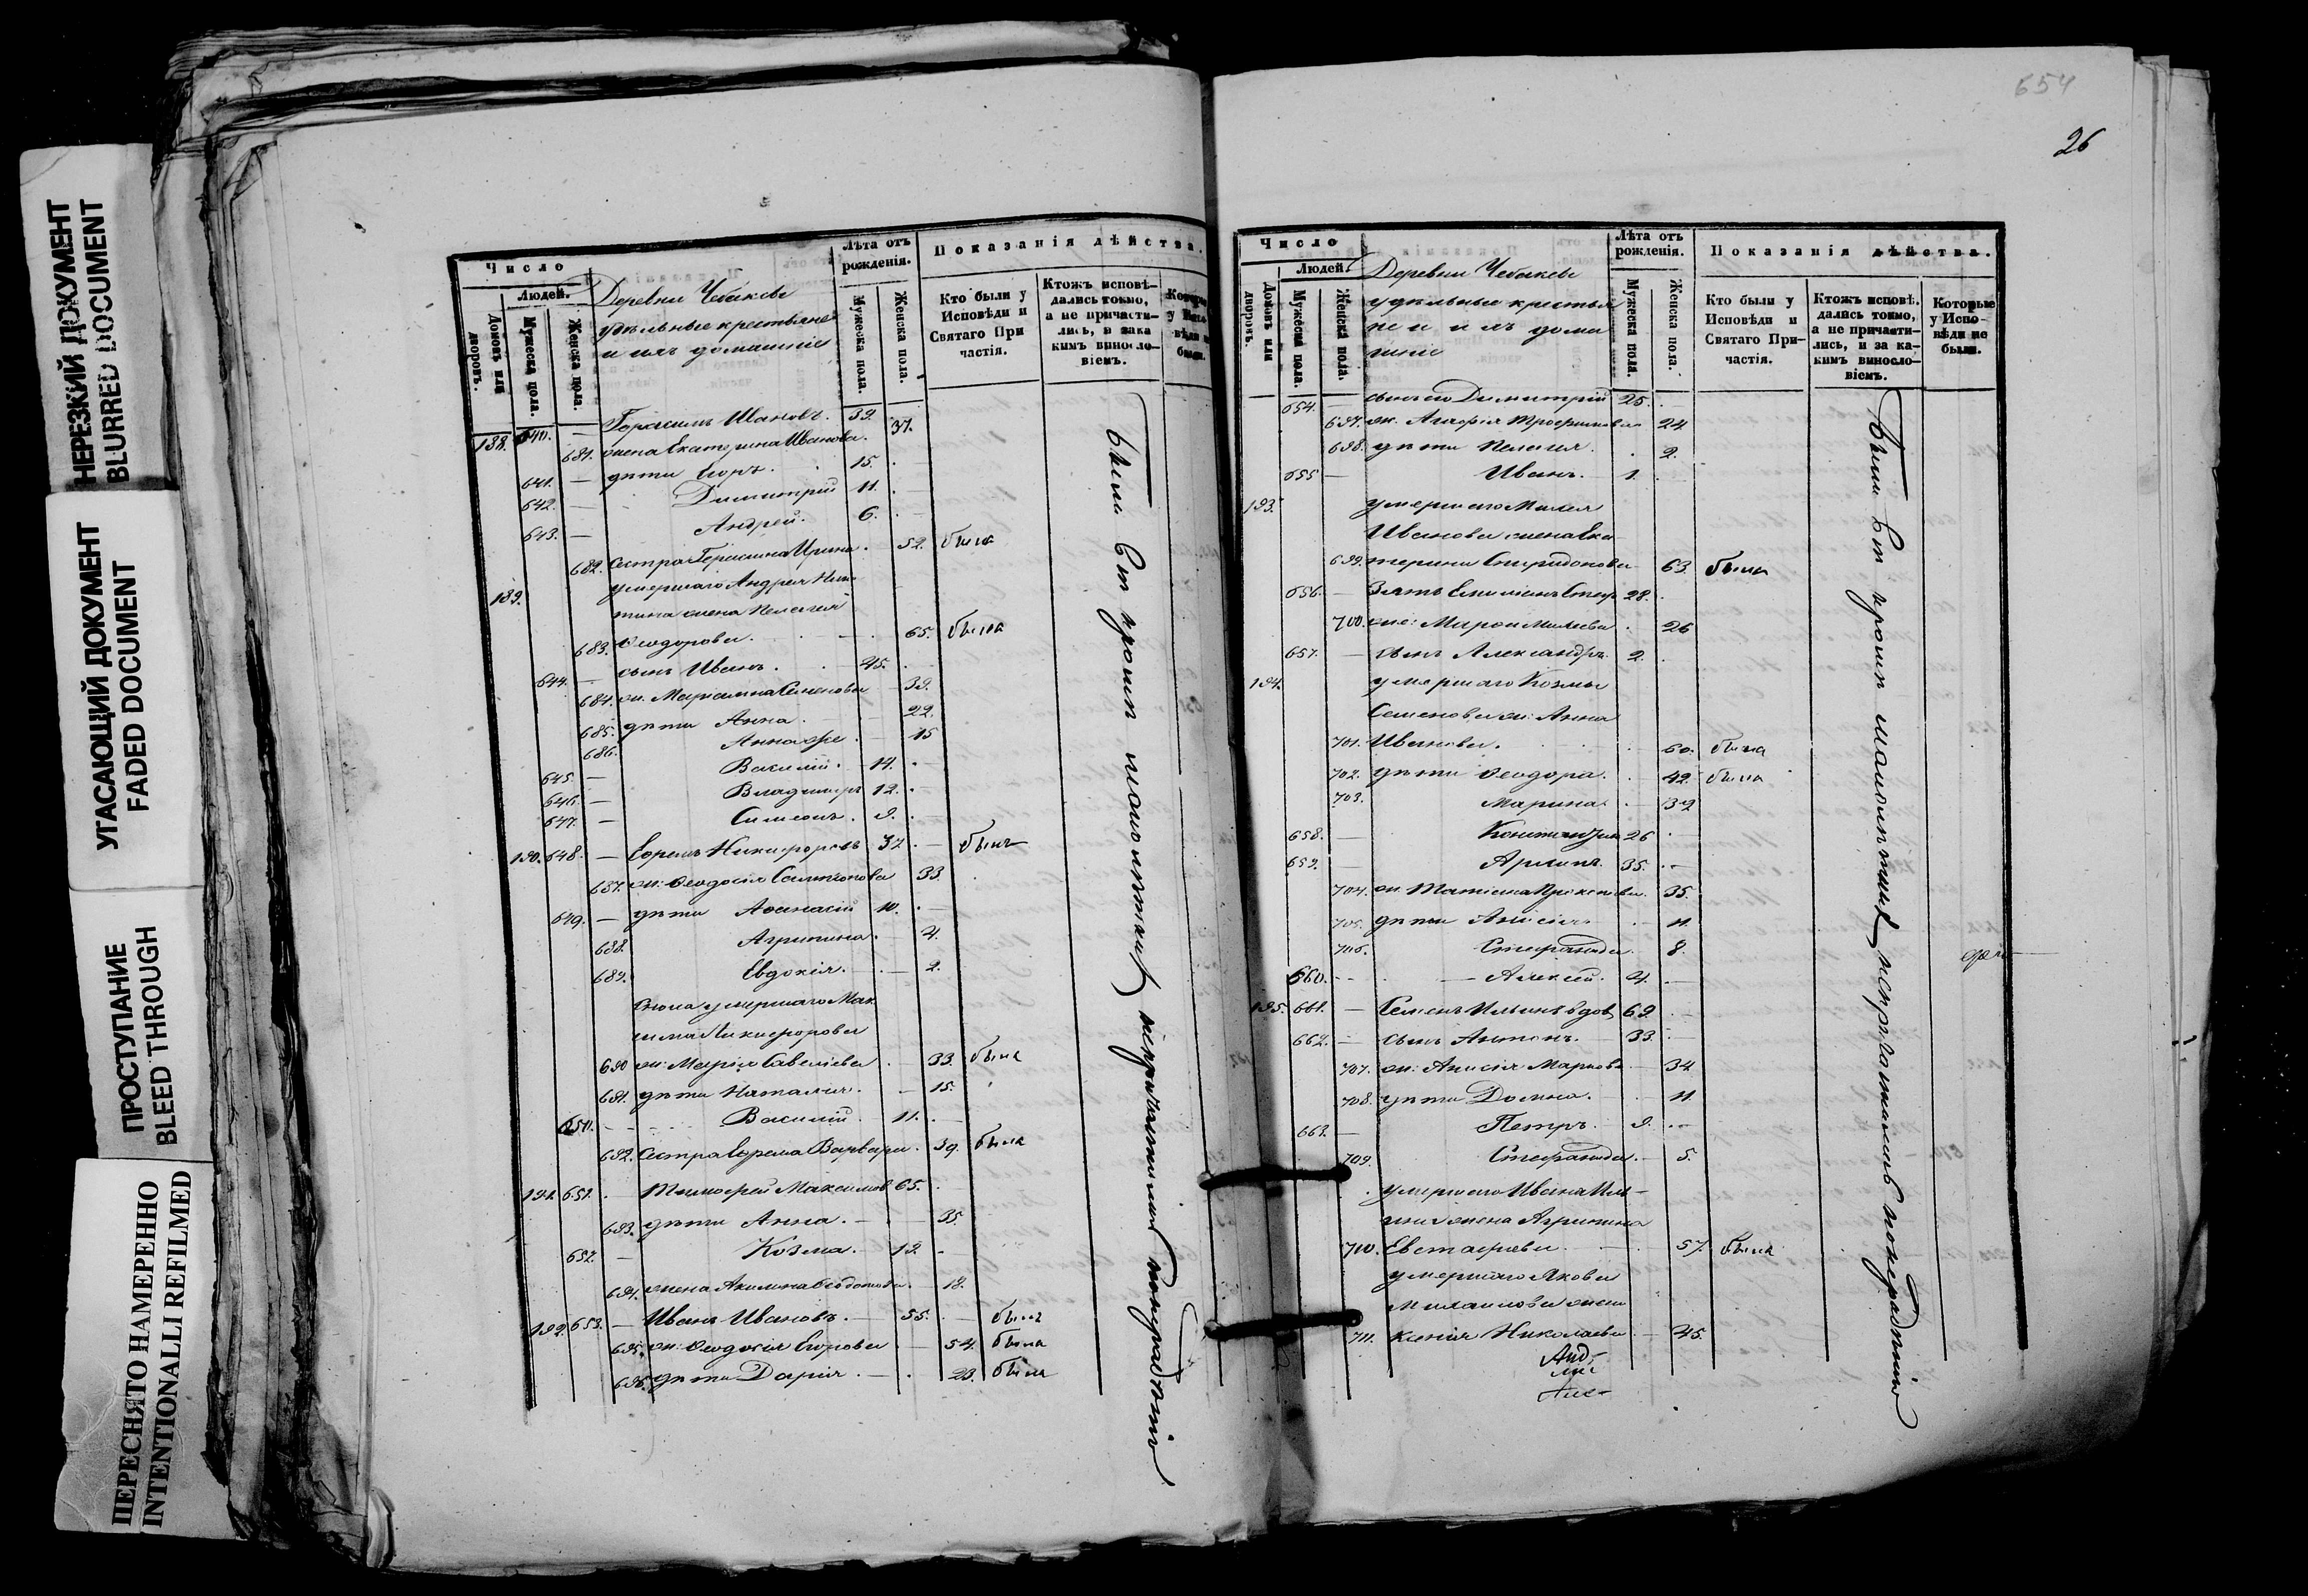 НЕРЕЗКИЙ ДОКУМЕНТ
BLURRED DOCUMENT
УГАСАЮЩИЙ ДОКУМЕНТ
FADED DOCUMENT
ПРОСТУПАНИЕ
BLEED THROUGH
ПЕРЕСНЯТО НАМЕРЕННО
INTENTIONALLI REFILMED
Число
Людей.
Домовъ или дворовъ.
Мужеска пола.
Женска пола.
Деревни Чебаковы
удѣльные крестьяне
и ихъ домашніе
Лѣта отъ рожденія.
Мужеска пола.
Женска пола.
Показанія дѣйства.
Кто были у Исповѣди и Святаго При частія.
Ктожъ исповѣ-дались токмо, а не причасти-лись, и зака кимъ винослo-віемъ.
188. 640. — Герасимъ Ивановъ. 39.
681. жена Екатерина Иванова. 37.
641. — дѣти Егоръ. 15.
642. — Димитрій 11.
643. — Андрей. 6.
682. Сестра Герасима Ирина. 52. была
189. умершаго Андрея
жена Пелагія
683. Ѳеодорова. 65. была
644. — сынъ Иванъ. 45.
684. ж. Маріамна Семенова 39.
685. дѣти Анна. 22.
686. Анна же. 15
645. — Василій. 14.
646. — Владимиръ 12.
647. — Симеонъ. 9.
190. 648. — Ефремъ Никифоровъ 37. — былъ
687. ж: Ѳеодосія 33.
649. — дѣти Аѳанасій 10.
688. Агрипина. 4.
689. Евдокія. 2.
умершаго Мак
сима Никифорова
690 ж: Марія Савеліева 33. была
691. дѣти Наталія. 15.
650. Василій. 11.
692. Сестра Ефрема Варвара. 39. была
191. 651. Тимофей Максимовъ 65.
693. дѣти Анна. 35.
652. — Козма. 19.
694. жена Акилина 18.
192. 653. — Иванъ Ивановъ. 55. былъ
695. ж: Ѳеодосія Егорова 54. была
696. дѣти Дарія. 23. была
Были всѣ кромѣ малолѣтнихъ
654
26
Число
Людей.
Домовъ или дворовъ.
Мужеска пола.
Женска пола.
Деревни Чебаковы
удѣльные крестья
не и ихъ дома
шніе
Лѣта отъ рожденія.
Мужеска пола.
Женска пола.
Показанія дѣйства.
Кто были у Исповѣди и Святаго При-частія.
Ктожъ исповѣ. дались токмо, а не причасти-лись, и за ка-кимъ винослo-віемъ.
Которые у Испо-вѣди не были.
654. сынъ его Димитрій 25.
697. ж. Агафія Трофимова 24.
698. дѣти Пелагія. 2.
655 — Иванъ. 1.
193. умершаго
Иванова жена Ека
699. терина Спиридонова 63. была
656. — Зять 28.
700. 26
657. — сынъ Александръ. 2.
194. умершаго Козмы
Семенова ж: Анна
701. Иванова. 60. была
702. дѣти Ѳеодора. 42. была
703. Марина. 32
658. — Константинъ 26
659. — 35.
704. ж: Татіана 35.
705. дѣти Анисія 11.
706. Стефанида. 8.
660. Алексій. 4.
195. 661. — Семенъ Ильинъ вдов 69.
662. — сынъ Антонъ. 33.
707. ж: Анисія Маркова 34
708. дѣти Домна. 11.
663. — Петръ. 9.
709. Стефанида. 5.
умершаго Ивана Иль-
ина жена Агрипина
710. Евстафіева. 57. была
умершаго Якова
711. Ксенія Николаева 45.
Были всѣ кромѣ малолѣтнихъ